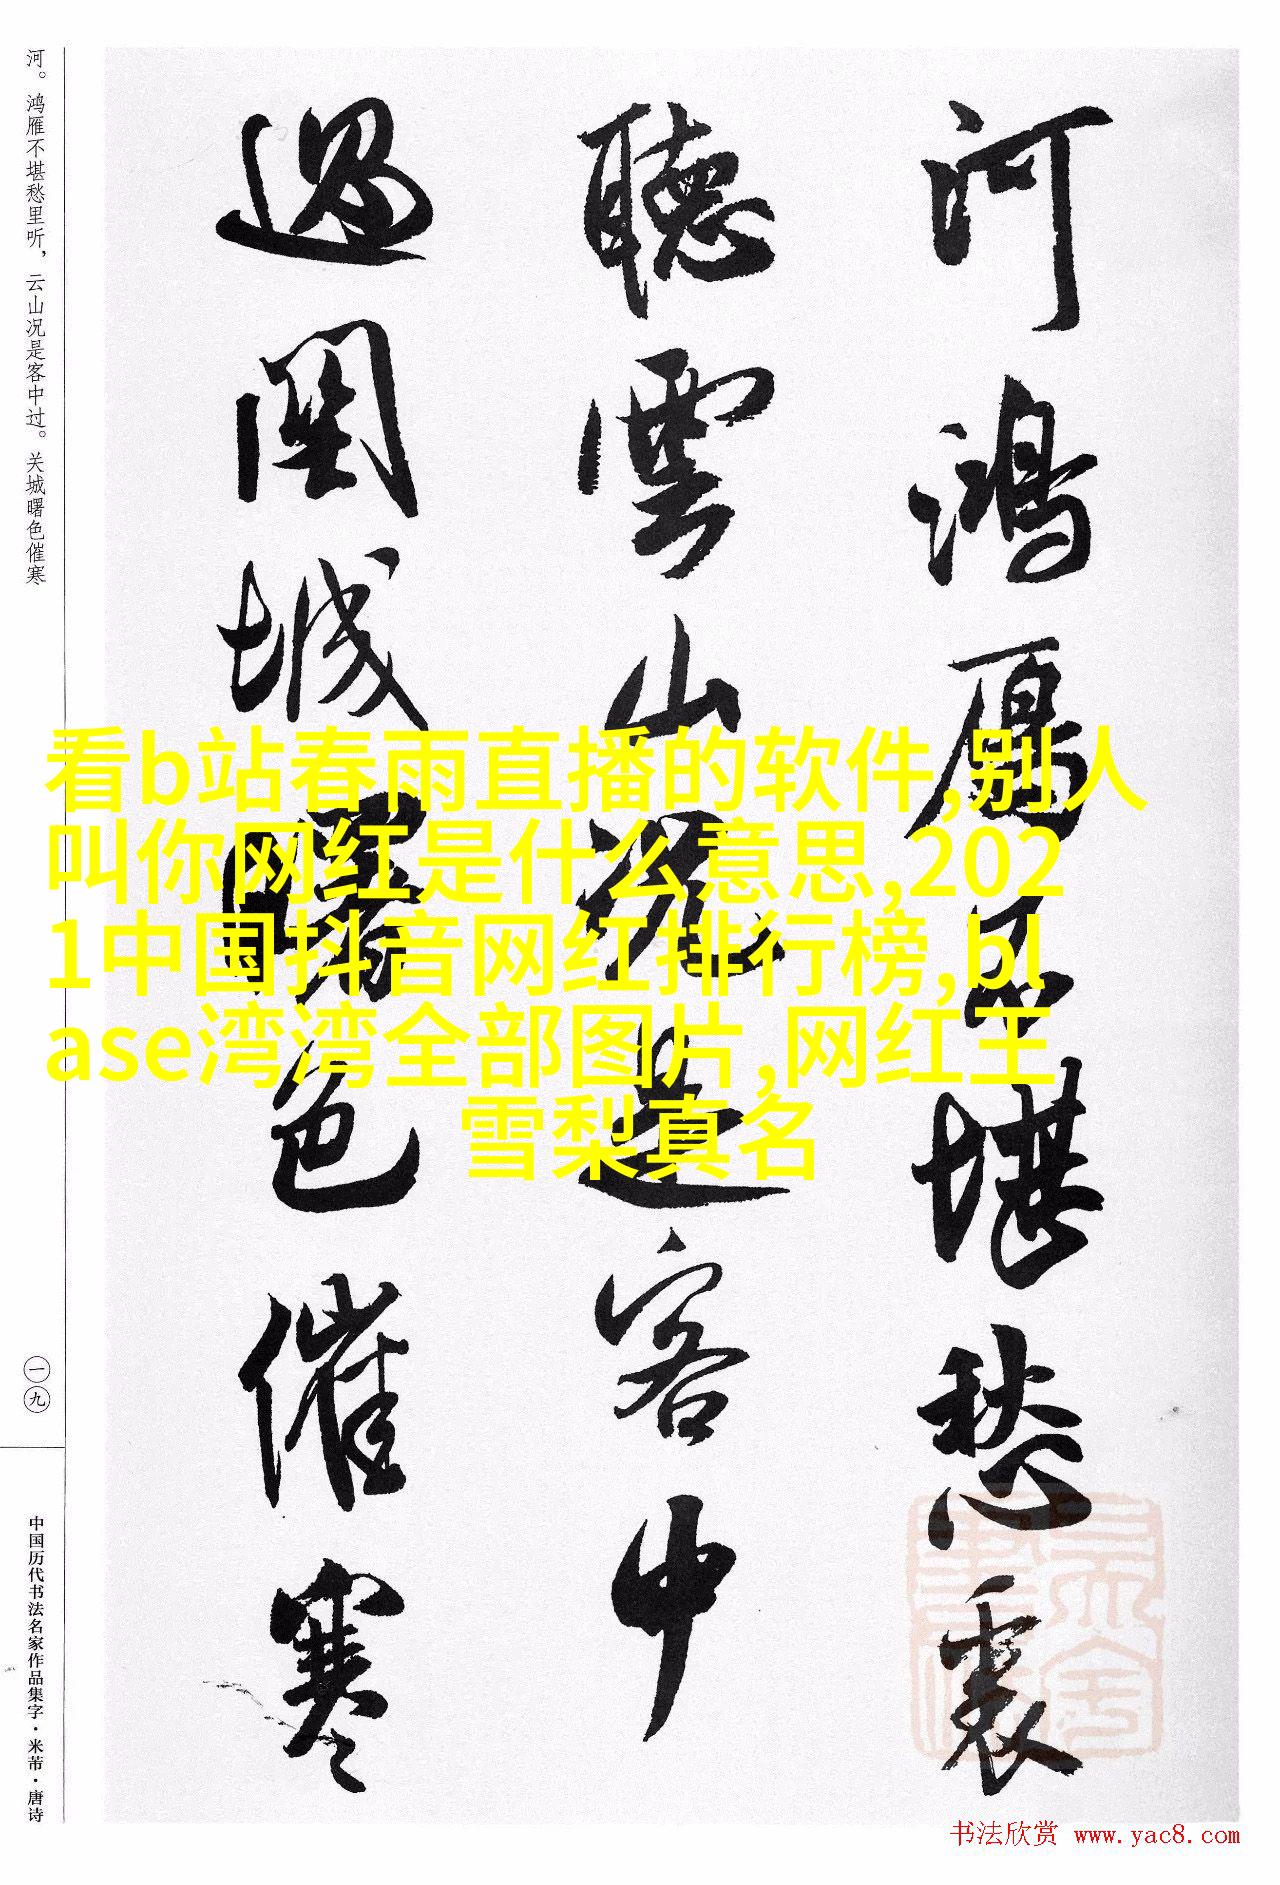 河鴻雁不堪愁裏
聽雲山況是客中
過關城曙色催寒
河。鸿雁不堪愁里听，云山况是客中过。关城曙色催寒
一九
中国历代书法名家作品集字·米芾·唐诗
看b站春雨直播的软件,别人
叫你网红是什么意思,202
1中国抖音网红排行榜,bl
ase湾湾全部图片,网红王
雪梨真名
书法欣赏 www.yac8.com